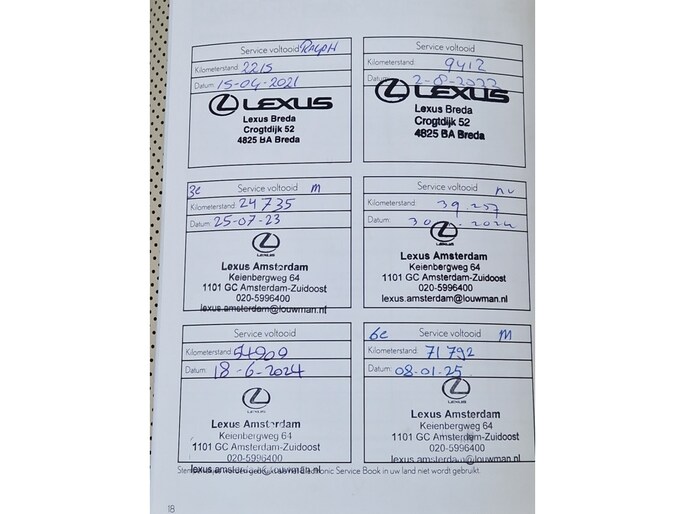 Service voltooid RALPH
Kilometerstand: 2215
Datum: 15-04-2021
LEXUS
Lexus Breda
Crogtdijk 52
4825 BA Breda
Service voltooid
Kilometerstand: 9412
Datum: 2-8-2022
LEXUS
Lexus Breda
Crogtdijk 52
4825 BA Breda
3e Service voltooid m
Kilometerstand: 24735
Datum: 25-07-23
LEXUS
Lexus Amsterdam
Keienbergweg 64
1101 GC Amsterdam-Zuidoost
020-5996400
lexus.amsterdam@louwman.nl
Service voltooid
Kilometerstand: 39.257
Datum: 30 2024
LEXUS
Lexus Amsterdam
Keienbergweg 64
1101 GC Amsterdam-Zuidoost
020-5996400
lexus.amsterdam@louwman.nl
Service voltooid
Kilometerstand: 54909
Datum: 18-6-2024
LEXUS
Lexus Amsterdam
Keienbergweg 64
1101 GC Amsterdam-Zuidoost
020-5996400
lexus.amsterdam@louwman.nl
6e Service voltooid m
Kilometerstand: 71792
Datum: 08-01-25
LEXUS
Lexus Amsterdam
Keienbergweg 64
1101 GC Amsterdam-Zuidoost
020-5996400
lexus.amsterdam@louwman.nl
Electronic Service Book in uw land niet wordt gebruikt.
18